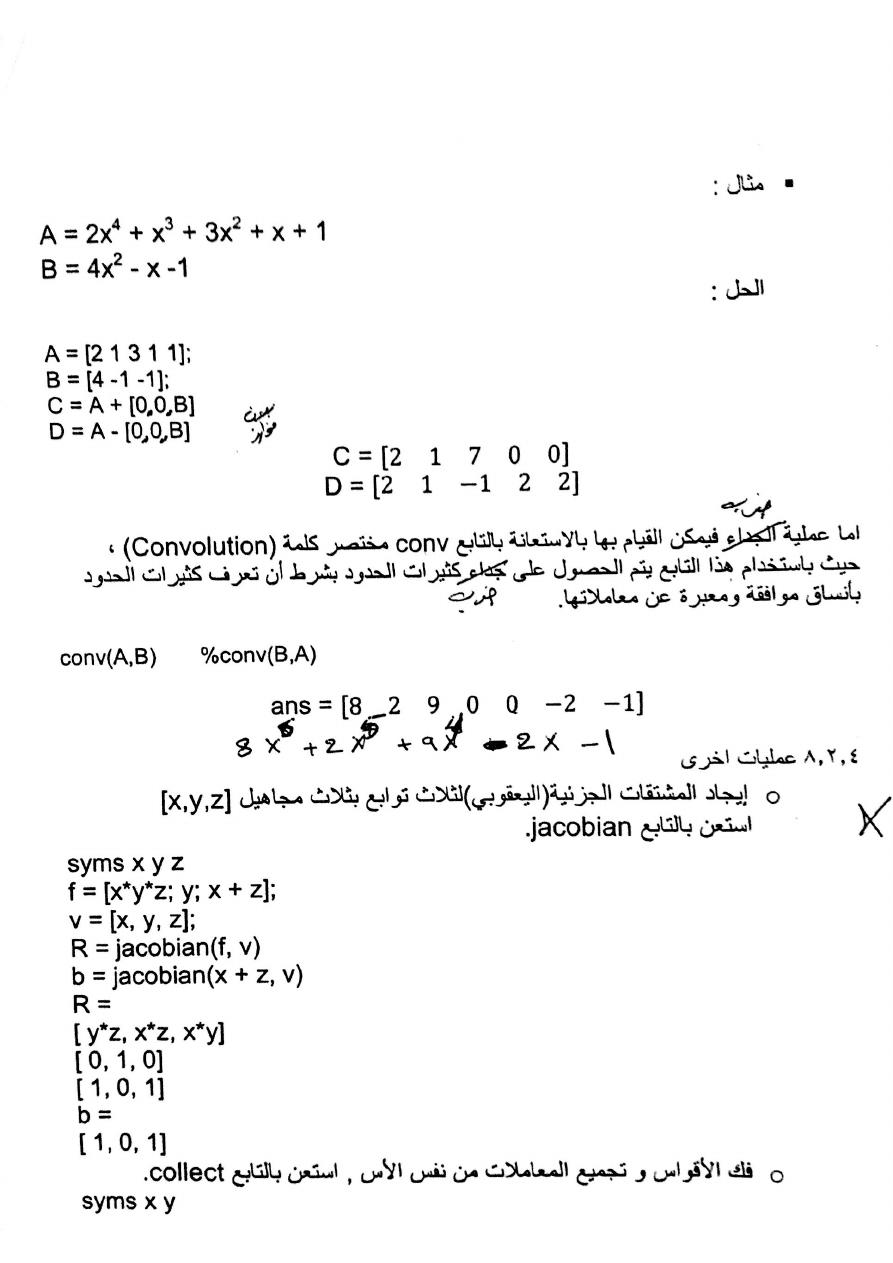 ▪ مثال :
A = 2x⁴ + x³ + 3x² + x + 1
B = 4x² - x -1
الحل :
A = [2 1 3 1 1];
B = [4 -1 -1];
C = A + [0,0,B]
D = A - [0,0,B]
C = [2 1 7 0 0]
D = [2 1 −1 2 2]
ضرب
اما عملية الجداء فيمكن القيام بها بالاستعانة بالتابع conv مختصر كلمة (Convolution) ،
حيث باستخدام هذا التابع يتم الحصول على جداء كثيرات الحدود بشرط أن تعرف كثيرات الحدود
ضرب
بأنساق موافقة ومعبرة عن معاملاتها.
conv(A,B) %conv(B,A)
ans = [8 2 9 0 0 −2 −1]
8x⁶ + 2x⁵ + 9x⁴ - 2x - 1
٨,٢,٤ عمليات اخرى
o إيجاد المشتقات الجزئية(اليعقوبي)لثلاث توابع بثلاث مجاهيل [x,y,z]
استعن بالتابع jacobian.
X
syms x y z
f = [x*y*z; y; x + z];
v = [x, y, z];
R = jacobian(f, v)
b = jacobian(x + z, v)
R =
[ y*z, x*z, x*y]
[ 0, 1, 0]
[ 1, 0, 1]
b =
[ 1, 0, 1]
o فك الأقواس و تجميع المعاملات من نفس الأس , استعن بالتابع collect.
syms x y